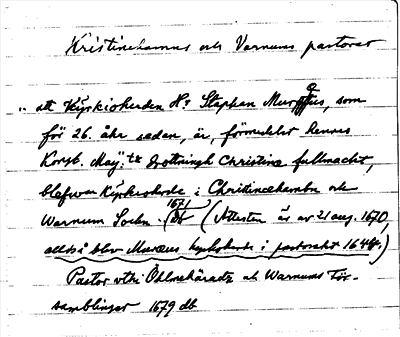 Kristinehamns och Varnums pastorat
"att Kyrkioherden Hr Stephan Muræus, som
för 26. åhr sedan, är, förmedelst hennes
Kongl. May:tz Drottningh Christinæ fullmacht,
blefwen Kyrkioherde i Christinæhambn och
Warnum Sochn" (1671 db) (Attesten är av 21 aug. 1670,
alltså blev Muræus kyrkoherde i pastoratet 1644.)
Pastor uthi Öhlmehäradz och Warnums För-
samblingar 1679 db